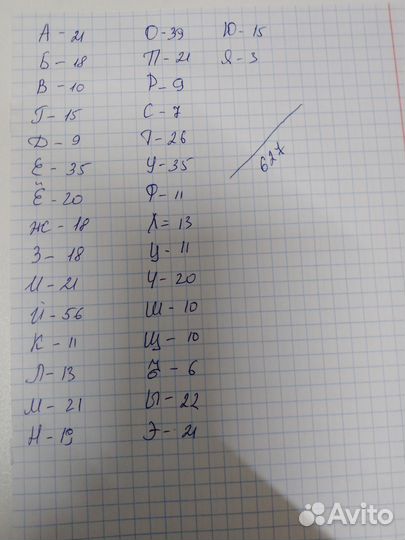 А - 21
Б - 18
В - 10
Г - 15
Д - 9
Е - 35
Ё - 20
Ж - 18
З - 18
И - 21
Й - 56
К - 11
Л - 13
М - 21
Н - 19
О - 39
П - 21
Р - 9
С - 7
Т - 26
У - 35
Ф - 11
Х = 13
Ц - 11
Ч - 20
Ш - 10
Щ - 10
- 6
Ы - 22
Э - 21
Ю - 15
Я - 3
Avito